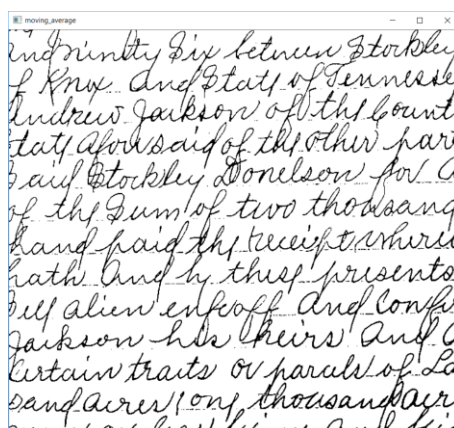 moving_average
and ninety Six between Stockley
of Knox and State of Tennesse
Andrew Jackson of the Count
tate aforesaid of the other par
said Stockley Donelson for a
of the Sum of two thousand
hand paid the receipt where
hath and by these presents
sell alien enfeoff and confi
Jackson his heirs and a
certain traits or parcels of La
sand acres (one thousand acre